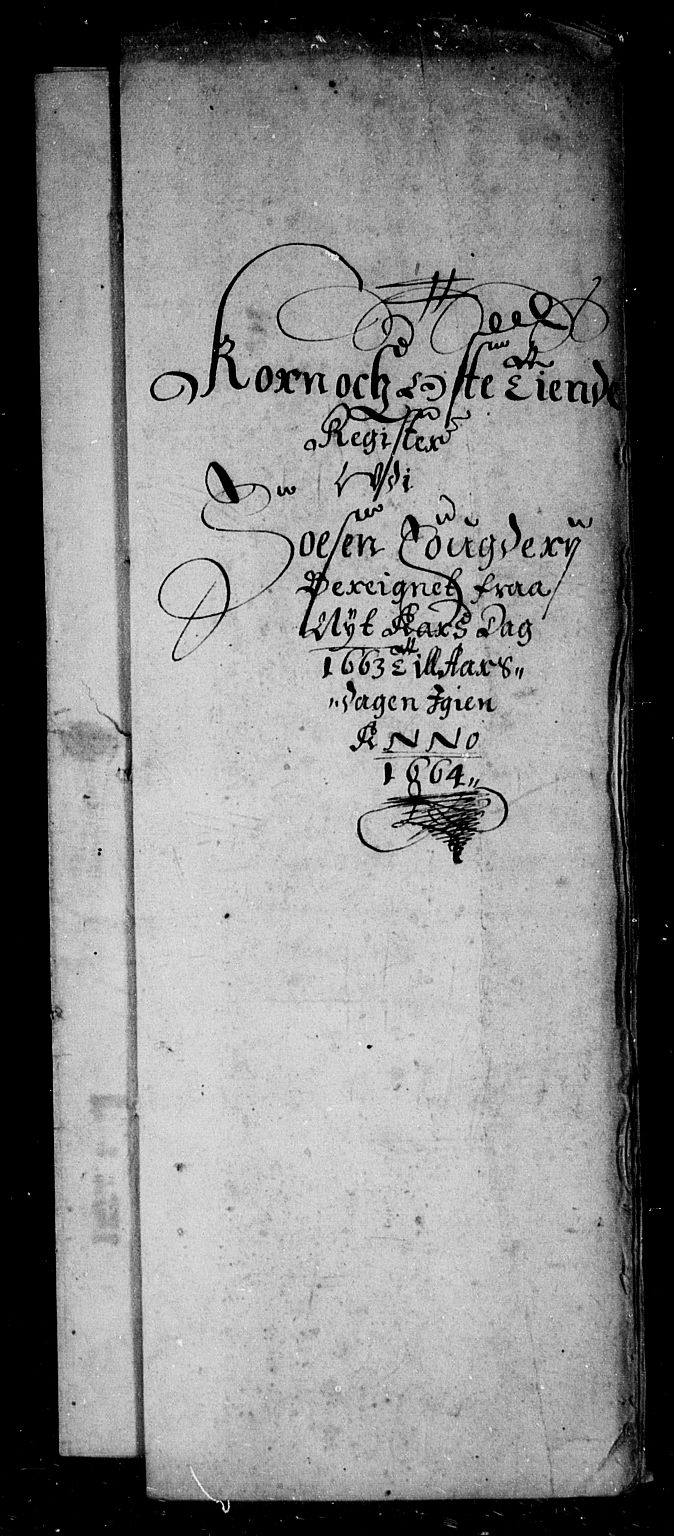 Korn och Oste Tiende
Register
Udi
Soesen Fougderij
Bereignet fraa
Nÿt Aars Dag
1663 Till Aars„
„dagen Igien
ANNO
1664„